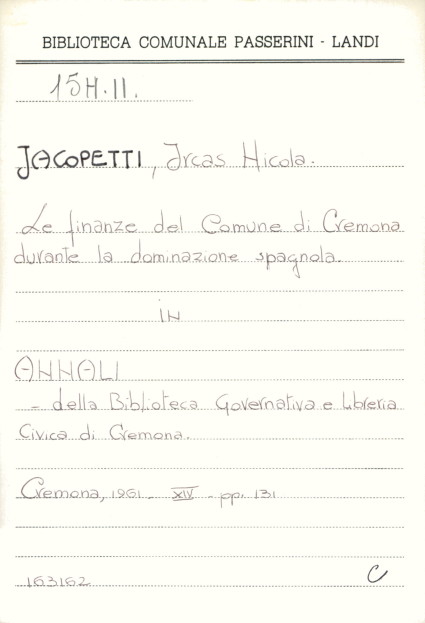 BIBLIOTECA COMUNALE PASSERINI - LANDI
15H.II.
JACOPETTI, Ircas Nicola.
Le finanze del Comune di Cremona
durante la dominazione spagnola.
IN
ANNALI
- della Biblioteca Governativa e Libreria
Civica di Cremona.
Cremona, 1961 - XIV - pp. 131
163162
C